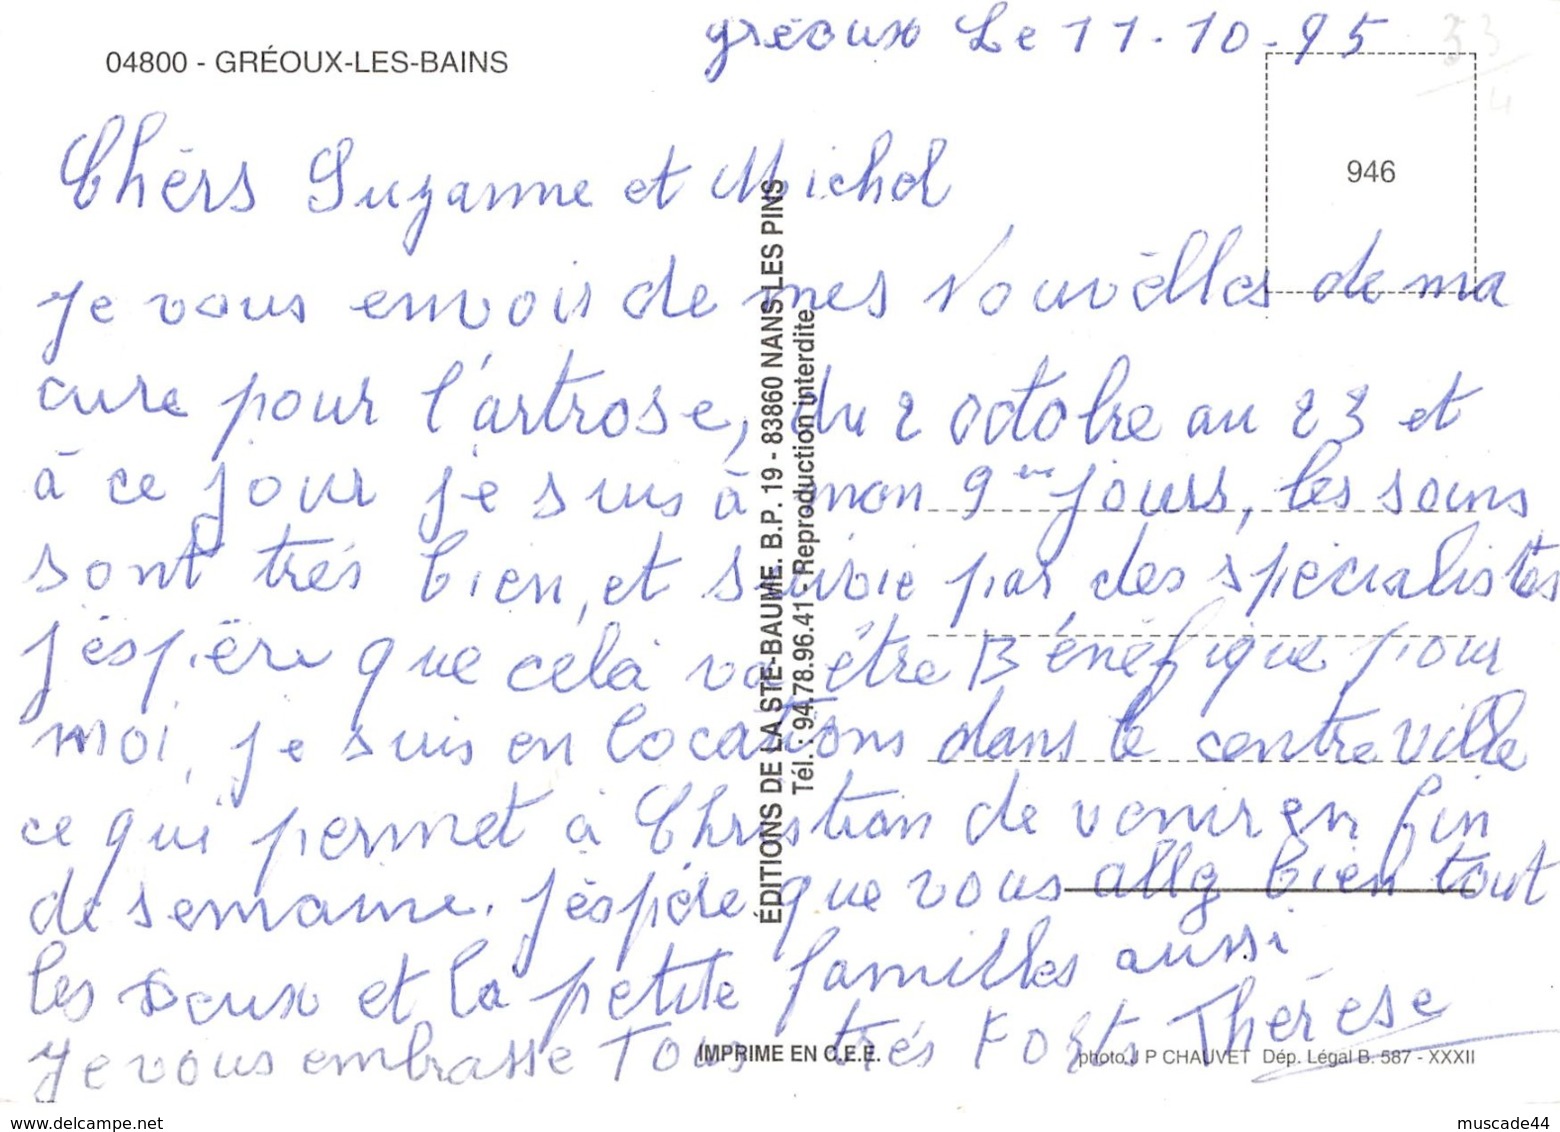 gréoux Le 11-10-95
04800 - GRÉOUX-LES-BAINS
946
Chèrs Suzanne et Michel
Je vous envois de mes Nouvèlles de ma
cure pour l'artrose, du 2 octobre au 23 et
à ce jour je suis à mon 9ème jours, les soins
sont trés bien, et suivie par des spécialistes
j'éspère que célà va être Bénéfique pour
moi, je suis en locations dans le centre ville
ce qui permet à Christian de venir en fin
de semaine. j'éspére que vous allez bien tout
les deux et la petite familles aussi
Je vous embrasse Tous trés Forts Thérèse
ÉDITIONS DE LA STE-BAUME. B.P. 19 - 83860 NANS LES PINS
Tél. : 94.78.96.41 - Reproduction interdite
IMPRIME EN C.E.E.
photo J P CHAUVET Dép. Légal B. 587 - XXXII
www.delcampe.net
muscade44